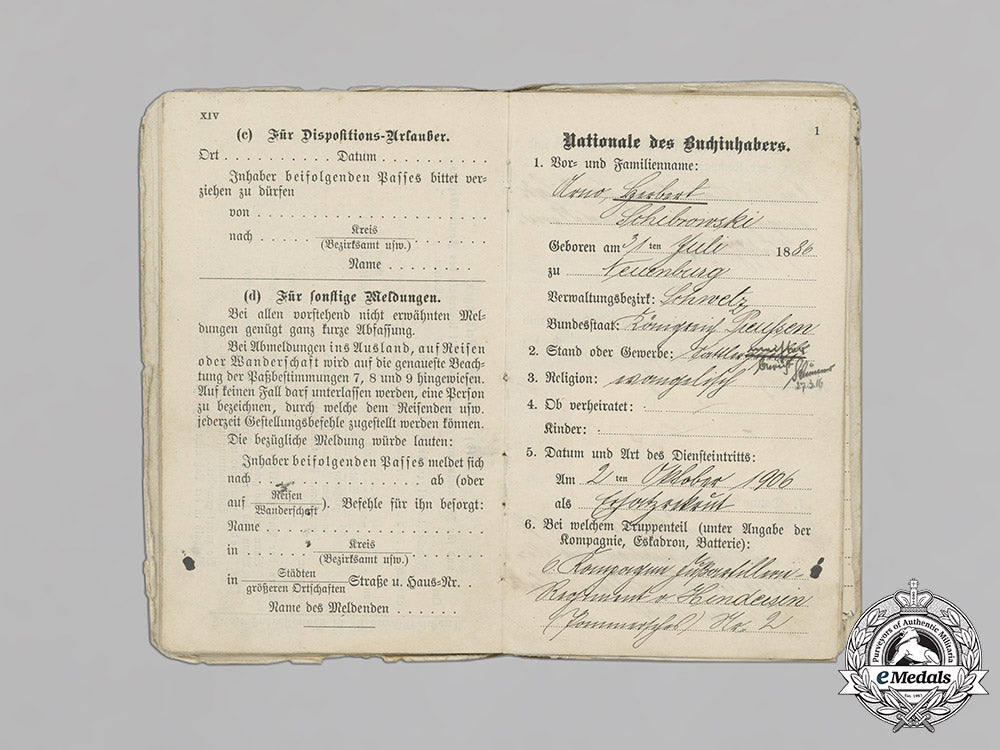 XIV
(c) Für Dispositions-Urlauber.
Ort . . . . . . . . . . Datum . . . . . . . . . . .
Inhaber beifolgenden Passes bittet ver-
ziehen zu dürfen
von . . . . . . . . . . . . . . . . . . . . . .
nach . . . . . Kreis . . . . . . . .
(Bezirksamt usw.)
Name . . . . . . . .
(d) Für sonstige Meldungen.
Bei allen vorstehend nicht erwähnten Mel-
dungen genügt ganz kurze Abfassung.
Bei Abmeldungen ins Ausland, auf Reisen
oder Wanderschaft wird auf die genaueste Beach-
tung der Paßbestimmungen 7, 8 und 9 hingewiesen.
Auf keinen Fall darf unterlassen werden, eine Person
zu bezeichnen, durch welche dem Reisenden usw.
jederzeit Gestellungsbefehle zugestellt werden können.
Die bezügliche Meldung würde lauten:
Inhaber beifolgenden Passes meldet sich
nach . . . . . . . . . . . . . . . . ab (oder
auf Reisen
Wanderschaft ). Befehle für ihn besorgt:
Name . . . . . . . . . . . . . . . . . . . . .
in . . . . . . . Kreis . . . . . . . .
(Bezirksamt usw.)
in Städten
größeren Ortschaften Straße u. Haus-Nr. .
Name des Meldenden . . . . . .
1
Nationale des Buchinhabers.
1. Vor- und Familienname:
Arno, Herbert
Schibrowski
Geboren am 31 ten Juli 1886
zu Neuenburg
Verwaltungsbezirk: Schwetz
Bundesstaat: Königreich Preußen
2. Stand oder Gewerbe: Sattler
3. Religion: evangelisch
27.3.16
4. Ob verheiratet:
Kinder:
5. Datum und Art des Diensteintritts:
Am 2 ten Oktober 1906
als Ersatzrekrut
6. Bei welchem Truppenteil (unter Angabe der
Kompagnie, Eskadron, Batterie):
6. Kompagnie Fußartillerie-
Regiment v. Hindersin
(Pommersches) Nr. 2
Purveyors of Authentic Militaria
eMedals